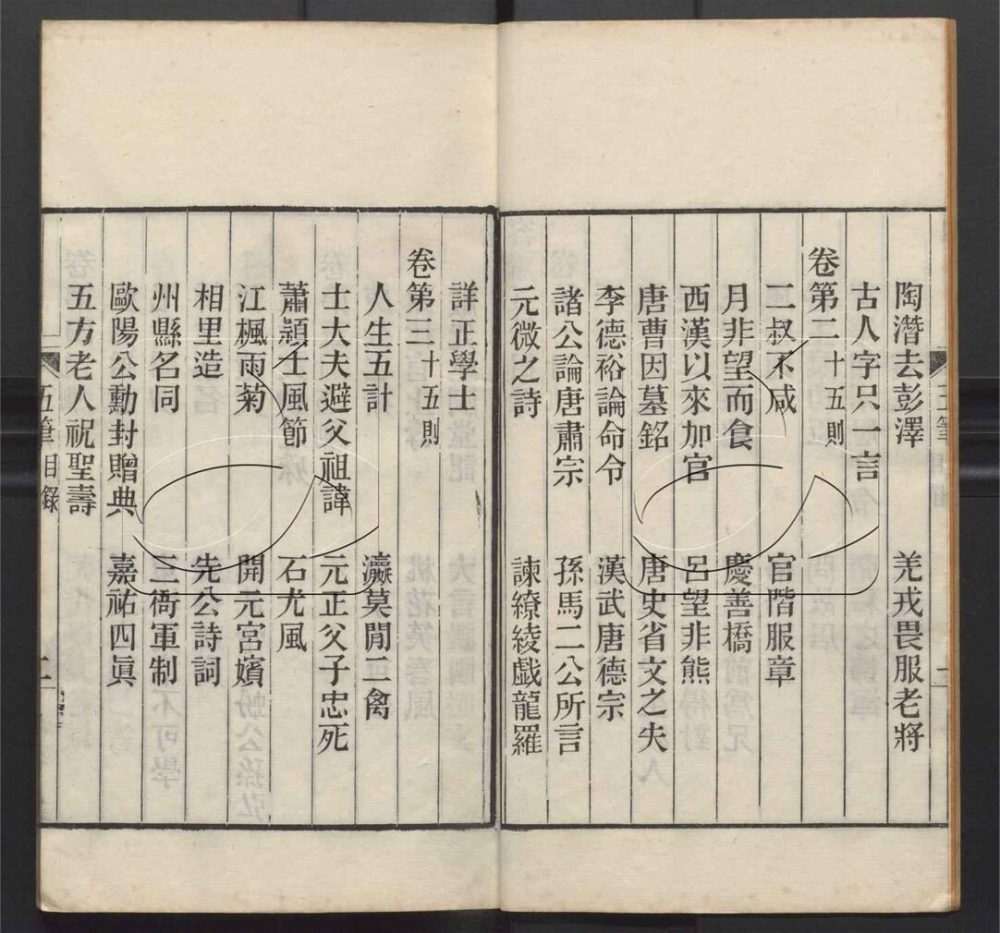 陶潛去彭澤　羌戎畏服老將
古人字只一言
卷第二十五則
二叔不咸　官階服章
月非望而食　慶善橋
西漢以來加官　呂望非熊
唐曹因墓銘　唐史省文之失
李德裕論命令　漢武唐德宗
諸公論唐肅宗　孫馬二公所言
元微之詩　諫繚綾戲龍羅
詳正學士
卷第三十五則
人生五計　瀛莫間二禽
士大夫避父祖諱　元正父子忠死
蕭穎士風節　石尤風
江楓雨菊　開元宮嬪
相里造　先公詩詞
州縣名同　三衙軍制
歐陽公勳封贈典　嘉祐四眞
五方老人祝聖壽
五筆目錄　二